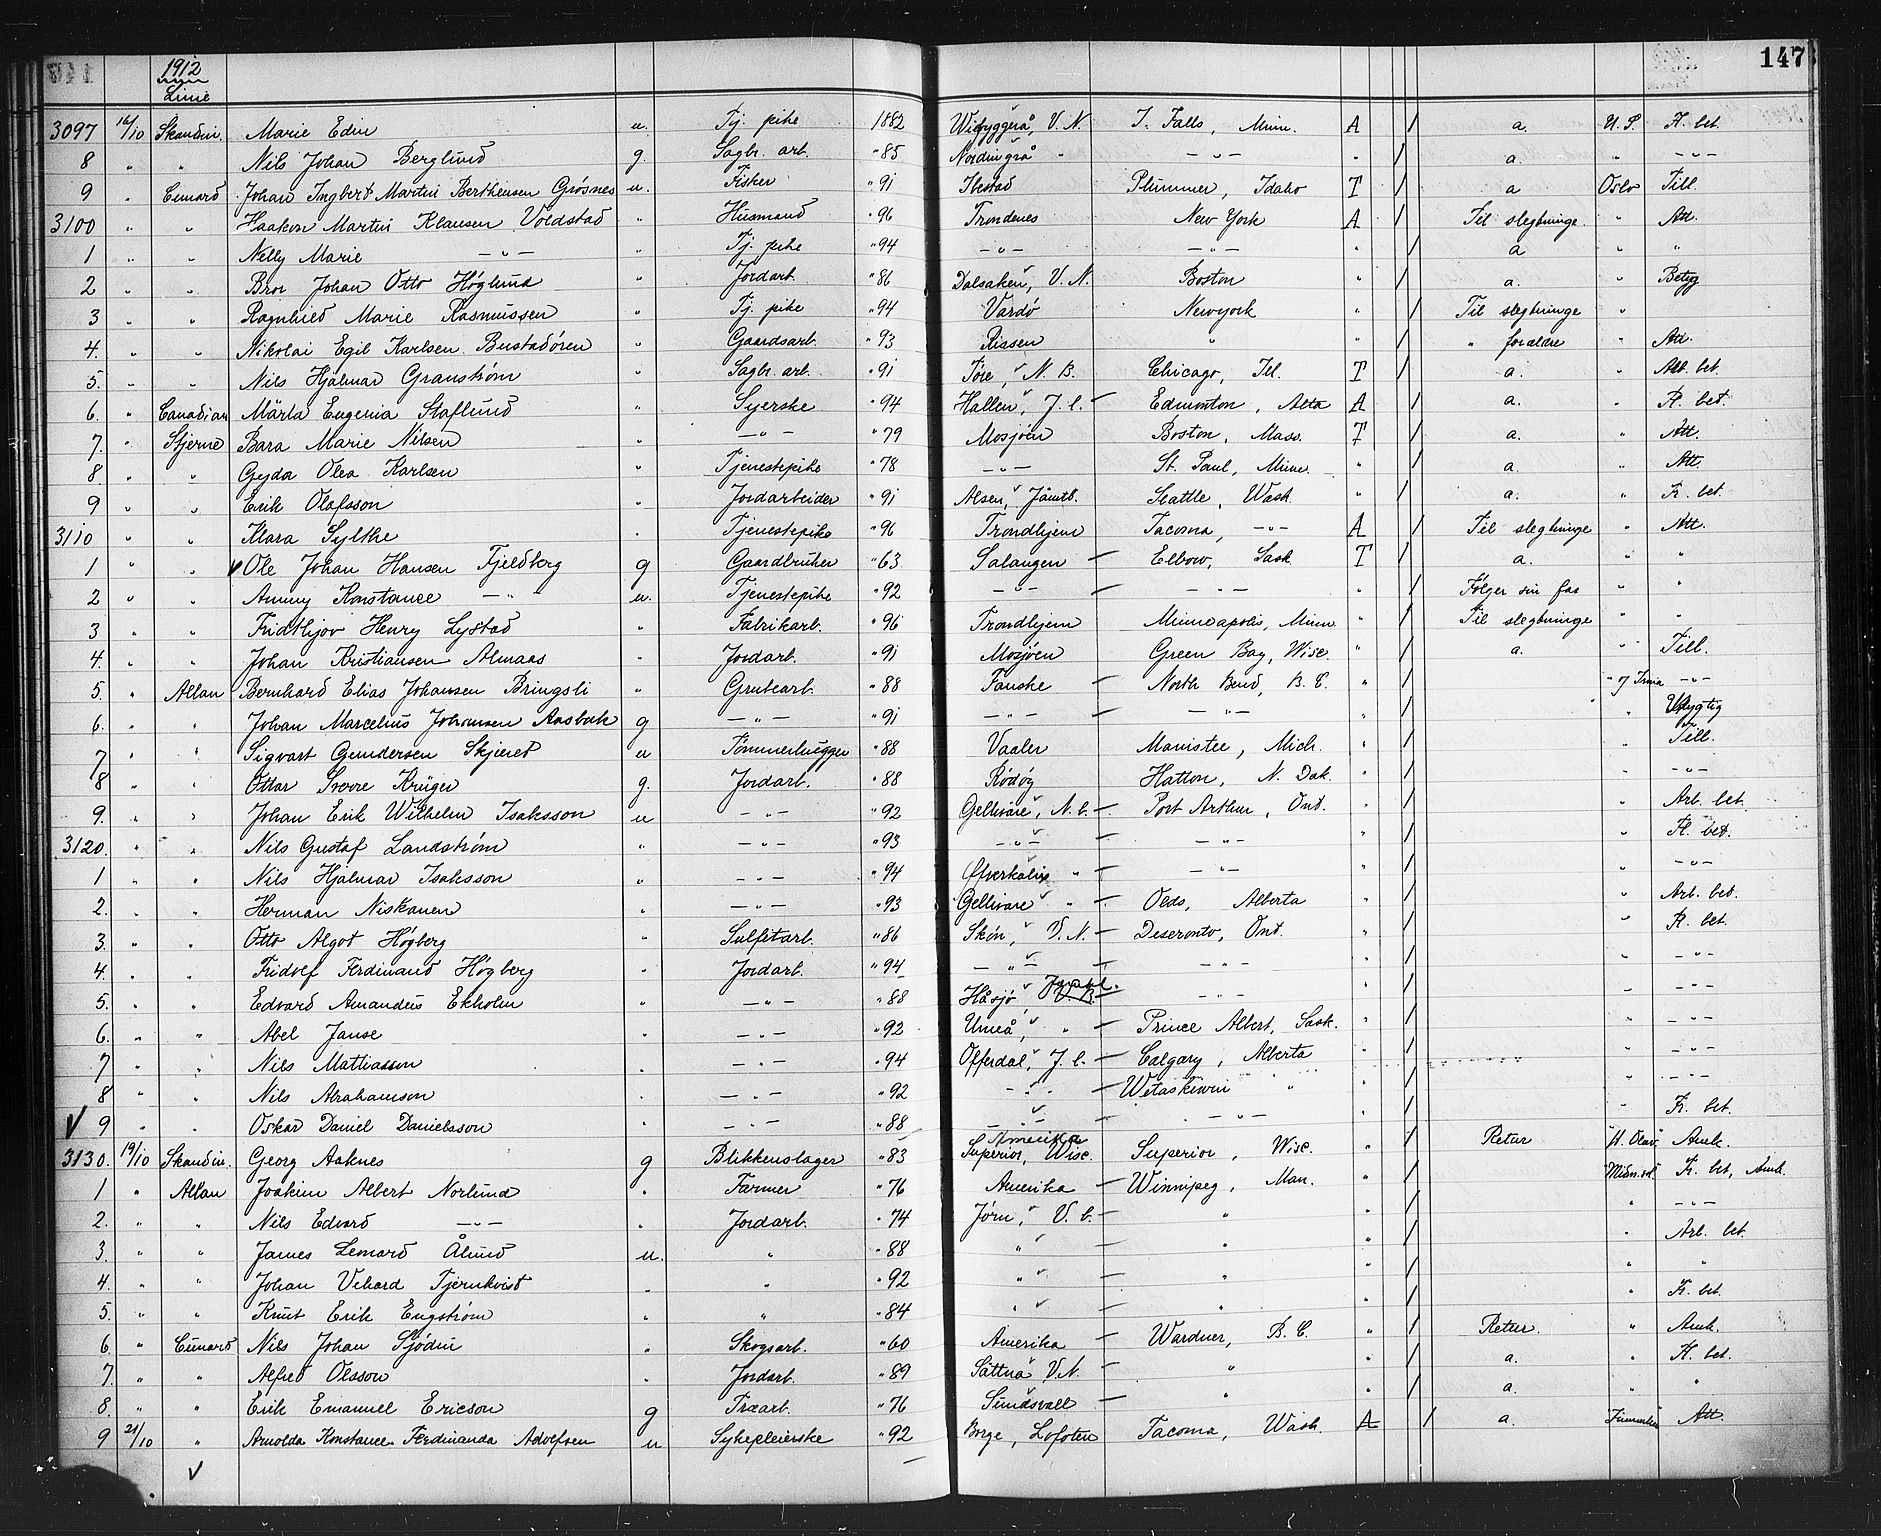 147
1912
Linie
3097 16/10 Skandin. Marie Edin u. Tj. pike 1882 Wibyggerå, V. N. I. Falls, Minn. A / a. U. S. K. bet.
8 " " Nils Johan Berglund g. Sagbr. arb. " 85 Nordingrå " — " — " / a. " — " —
9 " Cunard Johan Ingbert Martin Berthensen Grøsnes u. Fisker " 91 Ibestad Plummer, Idaho T / a Oslo Till.
3100 " " Haakon Martin Klausen Voldstad " Husmand " 96 Trondenes New York A / Til slegtninge. " Att.
1 " " Nelly Marie — " — " Tj. pike " 94 — " — — " — " / a " "
2 " " Bror Johan Otto Høglund " Jordarb. " 86 Dalsaken, V. N. Boston " / a. " Betyg
3 " " Ragnhild Marie Rasmussen " Tj. pike " 94 Vardø Newyork " / Til slegtninge "
4. " " Nikolai Egil Karlsen Bustadøren " Gaardsarb. " 93 Rissen " " / " forældre " Att.
5. " " Nils Hjalmar Granstrøm " Sagbr. arb. " 91 Töre, N. B. Chicago, Ill. T / a. " Arb. bet.
6. " Canadian Märta Eugenia Staflund " Syerske " 94 Hallen, J. l. — Edmonton, Alta A / a. " K. bet.
7. " Stjerne Bara Marie Nilsen " — " — " 79 Mosjøen Boston, Mass. T / a. " Att.
8. " " Gyda Olea Karlsen " Tjenestepike " 78 — " — St. Paul, Minn. " / a " Att.
9 " " Erik Olafsson " Jordarbeider " 91 Alsen, Jämtl. — Seattle, Wash. " / a. " K. bet.
3110 " " Klara Sylthe " Tjenestepike " 96 Trondhjem Tacoma, — " — A / Til slegtninge " Att.
1 " " V Ole Johan Hansen Fjeldberg g Gaardbruker " 63 Salangen — Elbow, Sask. T / a. " "
2 " " Ammy Konstance — " — u. Tjenestepike " 92 — " — — — " — " / Følger sin far " "
3 " " Fridthjov Henry Lystad " Fabrikarb. " 96 Trondhjem Minneapolis, Minn " / Til slegtninge " "
4. " " Johan Kristiansen Almaas " Jordarb. " 91 Mosjøen Green Bay, Wisc. " / a. " Till.
5. " Allan Bernhard Elias Johansen Bringsli " Grubearb. " 88 Fauske — North Bend, B. C. " / " of Irma — " —
6. " " Johan Marcelius Johansen Aasbak g — " — " 91 — " — — — " — " / " Utdygtig
7 " " Sigvart Gundersen Skjeret u Tømmerhugger " 88 Vaaler Manistee, Mich. " / " Till.
8 " " Ottar Sverre Krüger g. Jordarb. " 88 Rødøy Hatton, N. Dak. " / " — " —
9. " " Johan Erik Wilhelm Isaksson u — " — " 92 Gellivare, N. b. — Port Arthur, Ont. " / " Arb. bet.
3120. " " Nils Gustaf Landstrøm " — " — " 93 — " — — — " — " / " K. bet.
1 " " Nils Hjalmar Isaksson " — " — " 94 Øfverkalix " — — " — " / " — " —
2. " " Herman Niskanen " — " — " 93 Gellivare " — Olds, Alberta " / " Arb. bet.
3. " " Otto Algot Høgberg " Sulfitarb. " 86 Skön, V. N. — Deseronto, Ont. " / " K. bet.
4. " " Fridolf Ferdinand Høgberg " Jordarb. " 94 — " — — — " — " / " — " —
5. " " Edvard Amandus Ekholm " — " — " 88 Håsjö — " — " / " — " —
6. " " Abel Janse " — " — " 92 Umeå, " — Prince Albert, Sask. " / " — " —
7 " " Nils Mattiasson " — " — " 94 Offerdal, J. l. — Calgary, Alberta " / " — " —
8 " " Nils Abrahamson " — " — " 92 — " — — Wetaskiwin " " / " — " —
V 9 " " Oskar Daniel Danielsson " — " — " 88 — " — — — " — " / " K. bet.
3130. 19/10 Skandin. Georg Aaknes g Blikkenslager " 83 Amerika Superior, Wisc. Superior, Wisc. " / Retur "H. Olav" Amk.
1 " Allan Joakim Albert Norlund " Farmer " 76 Amerika — Winnipeg, Man. " / K. bet, Amk.
2. " " Nils Edvard — " — " Jordarb. " 74 Jörn, V. b. — " " / " — " —
3. " " James Leonard Ålund u. " " 88 " — " " / " Arb. bet.
4. " " Johan Vihard Tjernkvist " " " 92 " — " / " "
5. " " Knut Erik Engstrøm " " " 84 " — " " / " K. bet.
6. " Cunard Nils Johan Sjödin " Skogsarb. " 60 Amerika — Wardner, B. C. " / Retur. " Amk.
7. " " Alfred Olsson " Jordarb. " 89 Sättna V. N. — " " / a. " K. bet.
8. " " Erik Emanuel Ericson g Træarb. " 76 Sundsvall — " " / a. " "
9 21/10 " Arnolda Konstance Ferdinanda Adolfsen u Sykepleierske " 92 Borge, Lofoten Tacoma, Wash. A / a. Att
V